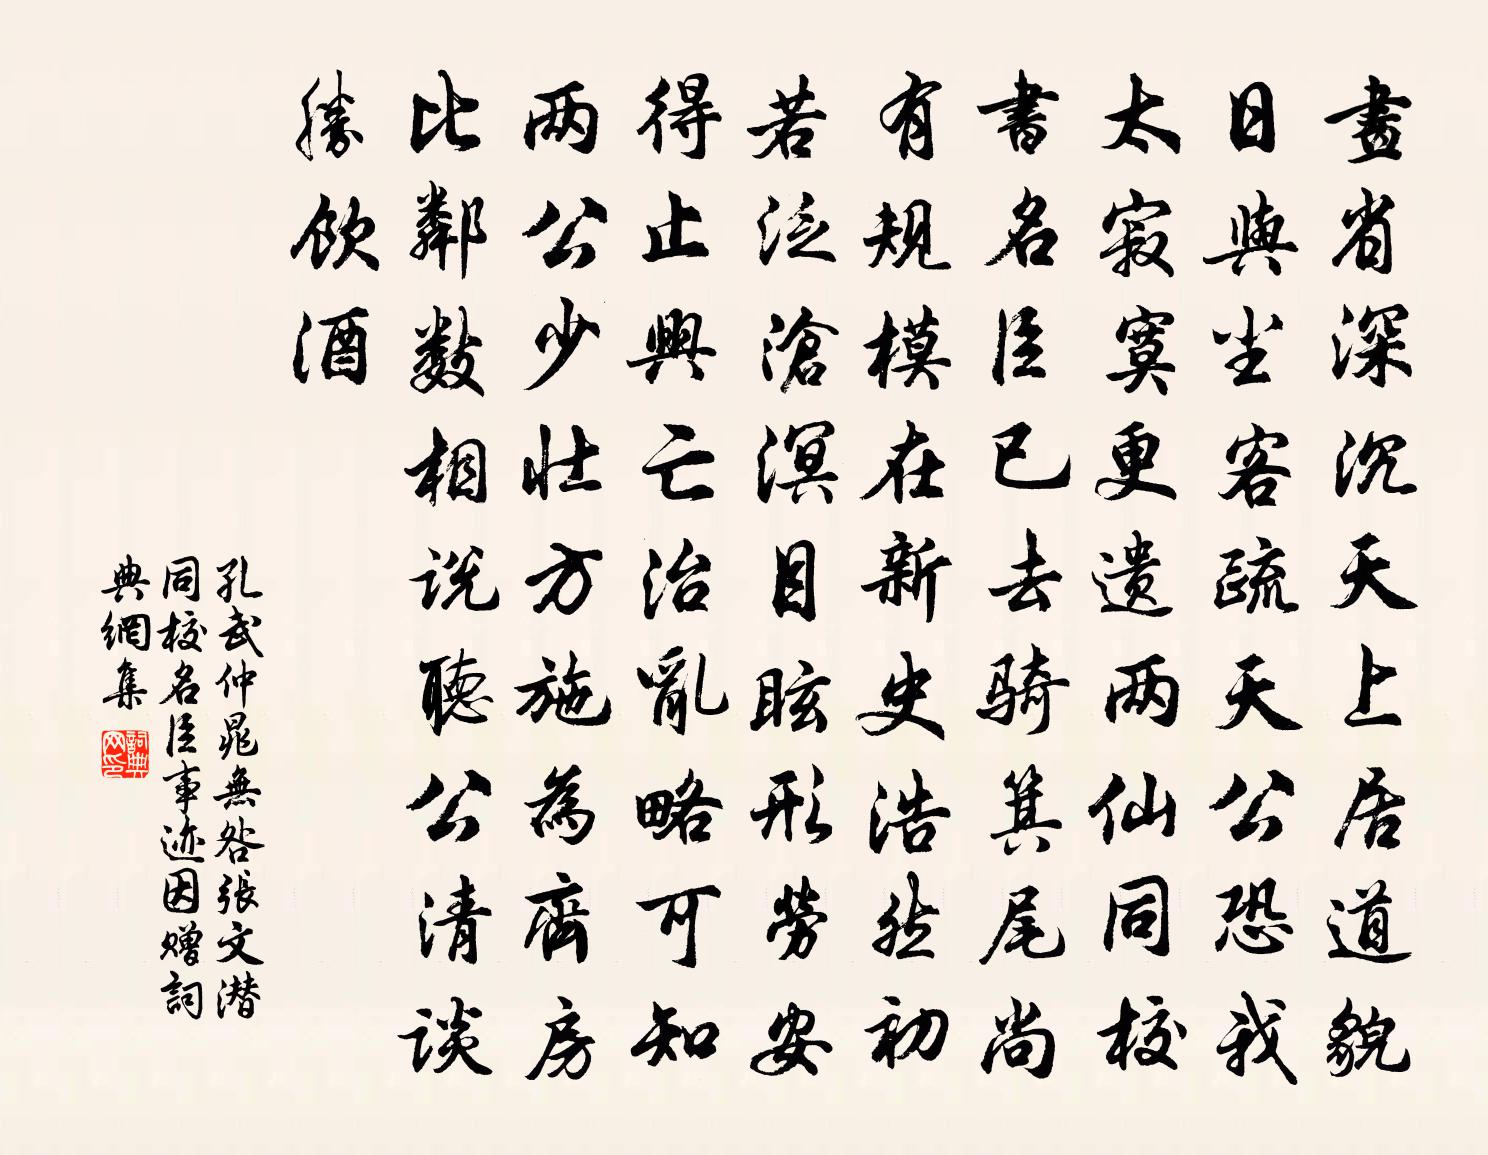 畫省深沉天上居道貌
日與尘客疏天公恐我
太寂寞更遺两仙同校
書名臣已去骑箕尾尚
有規模在新史浩然初
若泛滄溟目眩形勞安
得止興亡治亂略可知
两公少壮方施為齊房
比鄰数相説聽公清談
勝飲酒
孔武仲晁無咎張文潜
同校名臣事迹因赠詞
典網集
詞典网印